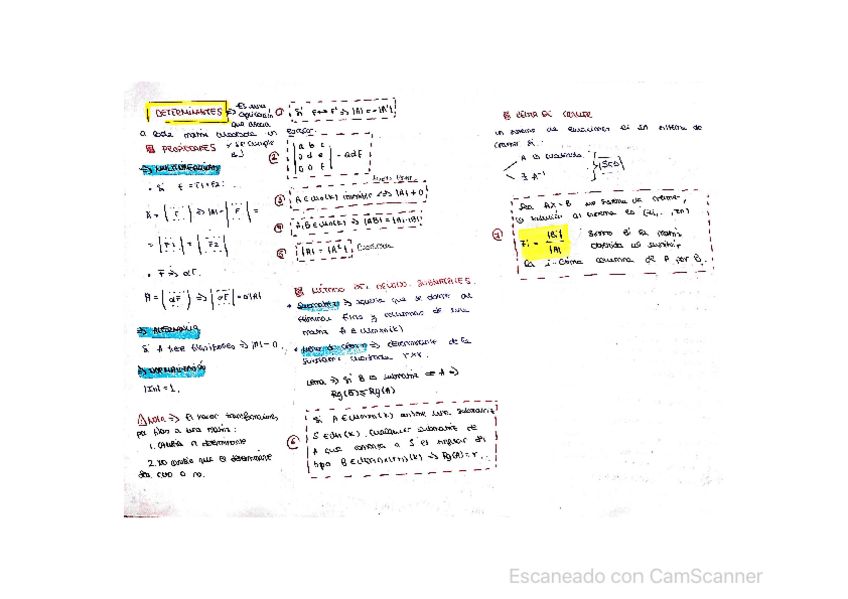 DETERMINANTES => Es una aplicación que asocia
a toda matriz cuadrada un escalar.
PROPIEDADES
=> MULTILINEALIDAD
• Si F = F1 + F2:
A = ( F ) => |A| = | F | =
= | F1 | + | F2 |
• F => αF.
A = ( αF ) => | αF | = α|A|
=> ALTERNANCIA
Si A tiene filas iguales => |A| = 0.
=> NORMALIZACIÓN
|In| = 1.
Nota => El hacer transformaciones
por filas a una matriz:
1. Cambia el determinante
2. No cambia que el determinante
sea cero o no.
1 Si F <-> F' => |A| = -|A'|
2 | a b c
0 d e
0 0 f | = adf
3 A ∈ Mn(K) invertible <=> |A| ≠ 0
4 A, B ∈ Mn(K) => |AB| = |A|·|B|
5 |A| = |A^t|
MÉTODO DEL MENOR. SUBMATRICES.
• Submatriz => aquella que se obtiene al
eliminar filas y columnas de una
matriz A ∈ Mmxn(K)
• Menor de orden r => determinante de la
submatriz cuadrada r x r.
Lema => Si B es submatriz de A =>
Rg(B) ≤ Rg(A)
6 Si A ∈ Mmxn(K) contiene una submatriz
S ∈ Mr(K). Cualquier submatriz de
A que contenga a S es singular del
tipo B ∈ M(r+1)x(r+1)(K) => Rg(A) = r.
REGLA DE CRAMER
Un sistema de ecuaciones es un sistema de
Cramer si:
A es cuadrada
∃ A^-1
SCD
7 Sea AX = B un sistema de Cramer,
la solución al sistema es (x1, ..., xn)
xi = |Bi| / |A| siendo Bi la matriz
obtenida al sustituir
la i-ésima columna de A por B.
Escaneado con CamScanner